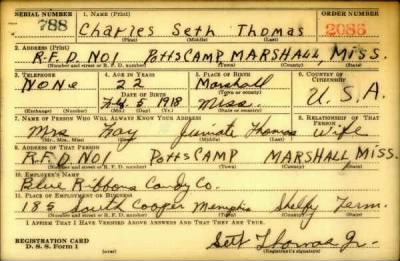 SERIAL NUMBER 1. NAME (Print) ORDER NUMBER
788 Charles Seth Thomas 2086
(First) (Middle) (Last)
2. ADDRESS (Print)
R.F.D. NO1 POTTSCAMP MARSHALL, MISS.
(Number and street or R. F. D. number) (Town) (County) (State)
3. TELEPHONE 4. AGE IN YEARS 5. PLACE OF BIRTH 6. COUNTRY OF CITIZENSHIP
NONe 22 Marshall
DATE OF BIRTH (Town or county)
Feb. 5 1918 Miss. U.S.A.
(Exchange) (Number) (Mo.) (Day) (Yr.) (State or country)
7. NAME OF PERSON WHO WILL ALWAYS KNOW YOUR ADDRESS 8. RELATIONSHIP OF THAT PERSON
Mrs Thomas Wife
(Mr., Mrs., Miss) (First) (Middle) (Last)
9. ADDRESS OF THAT PERSON
R.F.D. NO1 POTTSCAMP MARSHALL, MISS.
(Number and street or R. F. D. number) (Town) (County) (State)
10. EMPLOYER'S NAME
Blue Ribbons Candy Co.
11. PLACE OF EMPLOYMENT OR BUSINESS
185 South Cooper Memphis Shelby Tenn.
(Number and street or R. F. D. number) (Town) (County) (State)
I AFFIRM THAT I HAVE VERIFIED ABOVE ANSWERS AND THAT THEY ARE TRUE.
REGISTRATION CARD
D. S. S. Form 1 Seth Thomas Jr.
(over) (Registrant's signature)